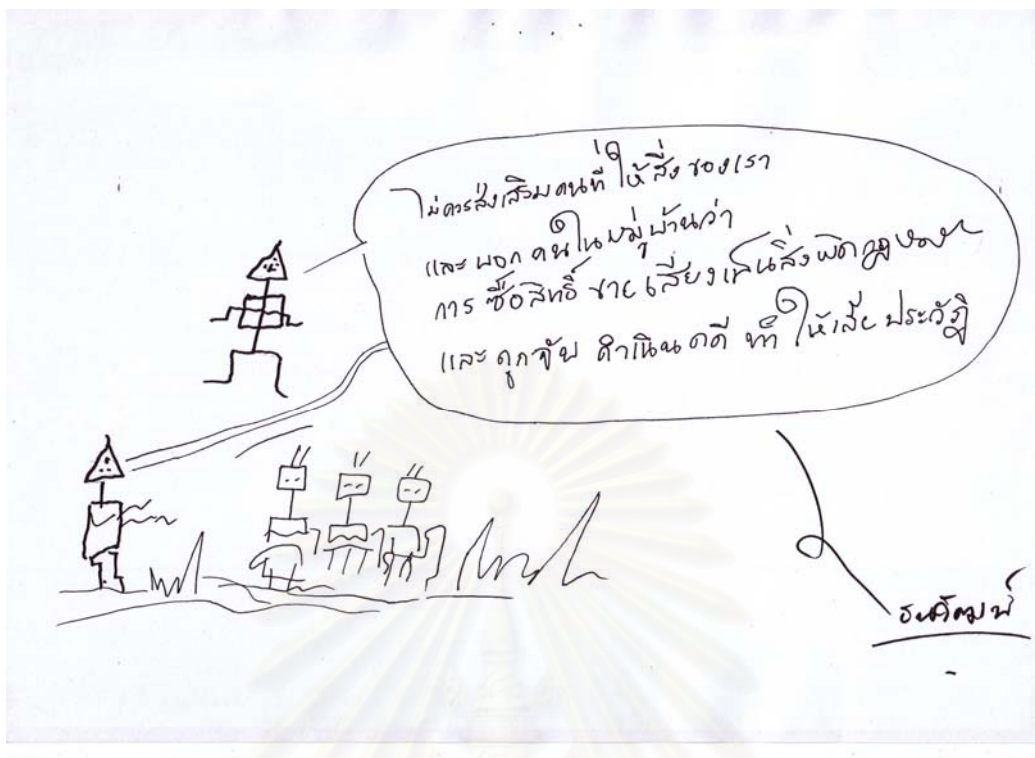 ไม่ควรส่งเสริมคนที่ให้สิ่งของเรา
และบอกคนในหมู่บ้านว่า
การซื้อสิทธิ์ขายเสียงเป็นสิ่งผิดกฎหมาย
และถูกจับ ดำเนินคดี ทำให้เสียประวัติ